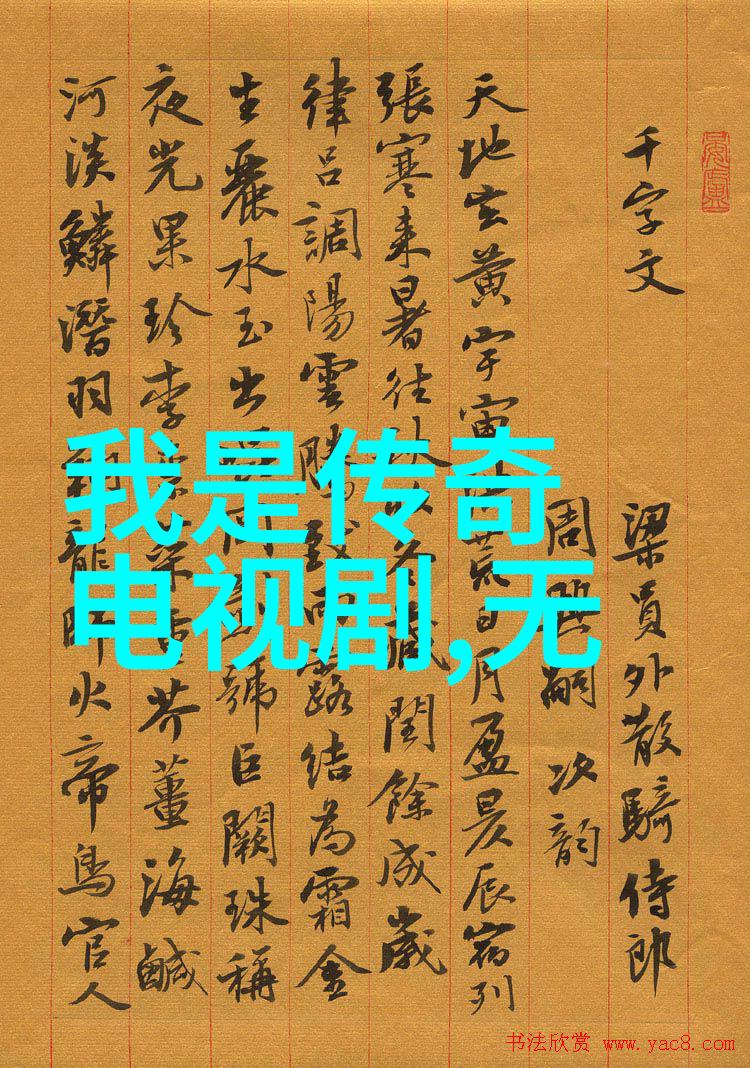 千字文 梁員外散騎侍郎
周興嗣次韵
天地玄黄宇宙荒日月盈昃辰宿列
張寒来暑往秋冬藏閏餘成歲
律呂調陽雲騰致雨露結為霜金
生麗水玉出岡號巨闕珠稱
夜光果珍李菜重芥薑海鹹
河淡鱗潛羽翔龍師火帝鳥官人
我是传奇
电视剧,无
书法欣赏 www.yac8.com